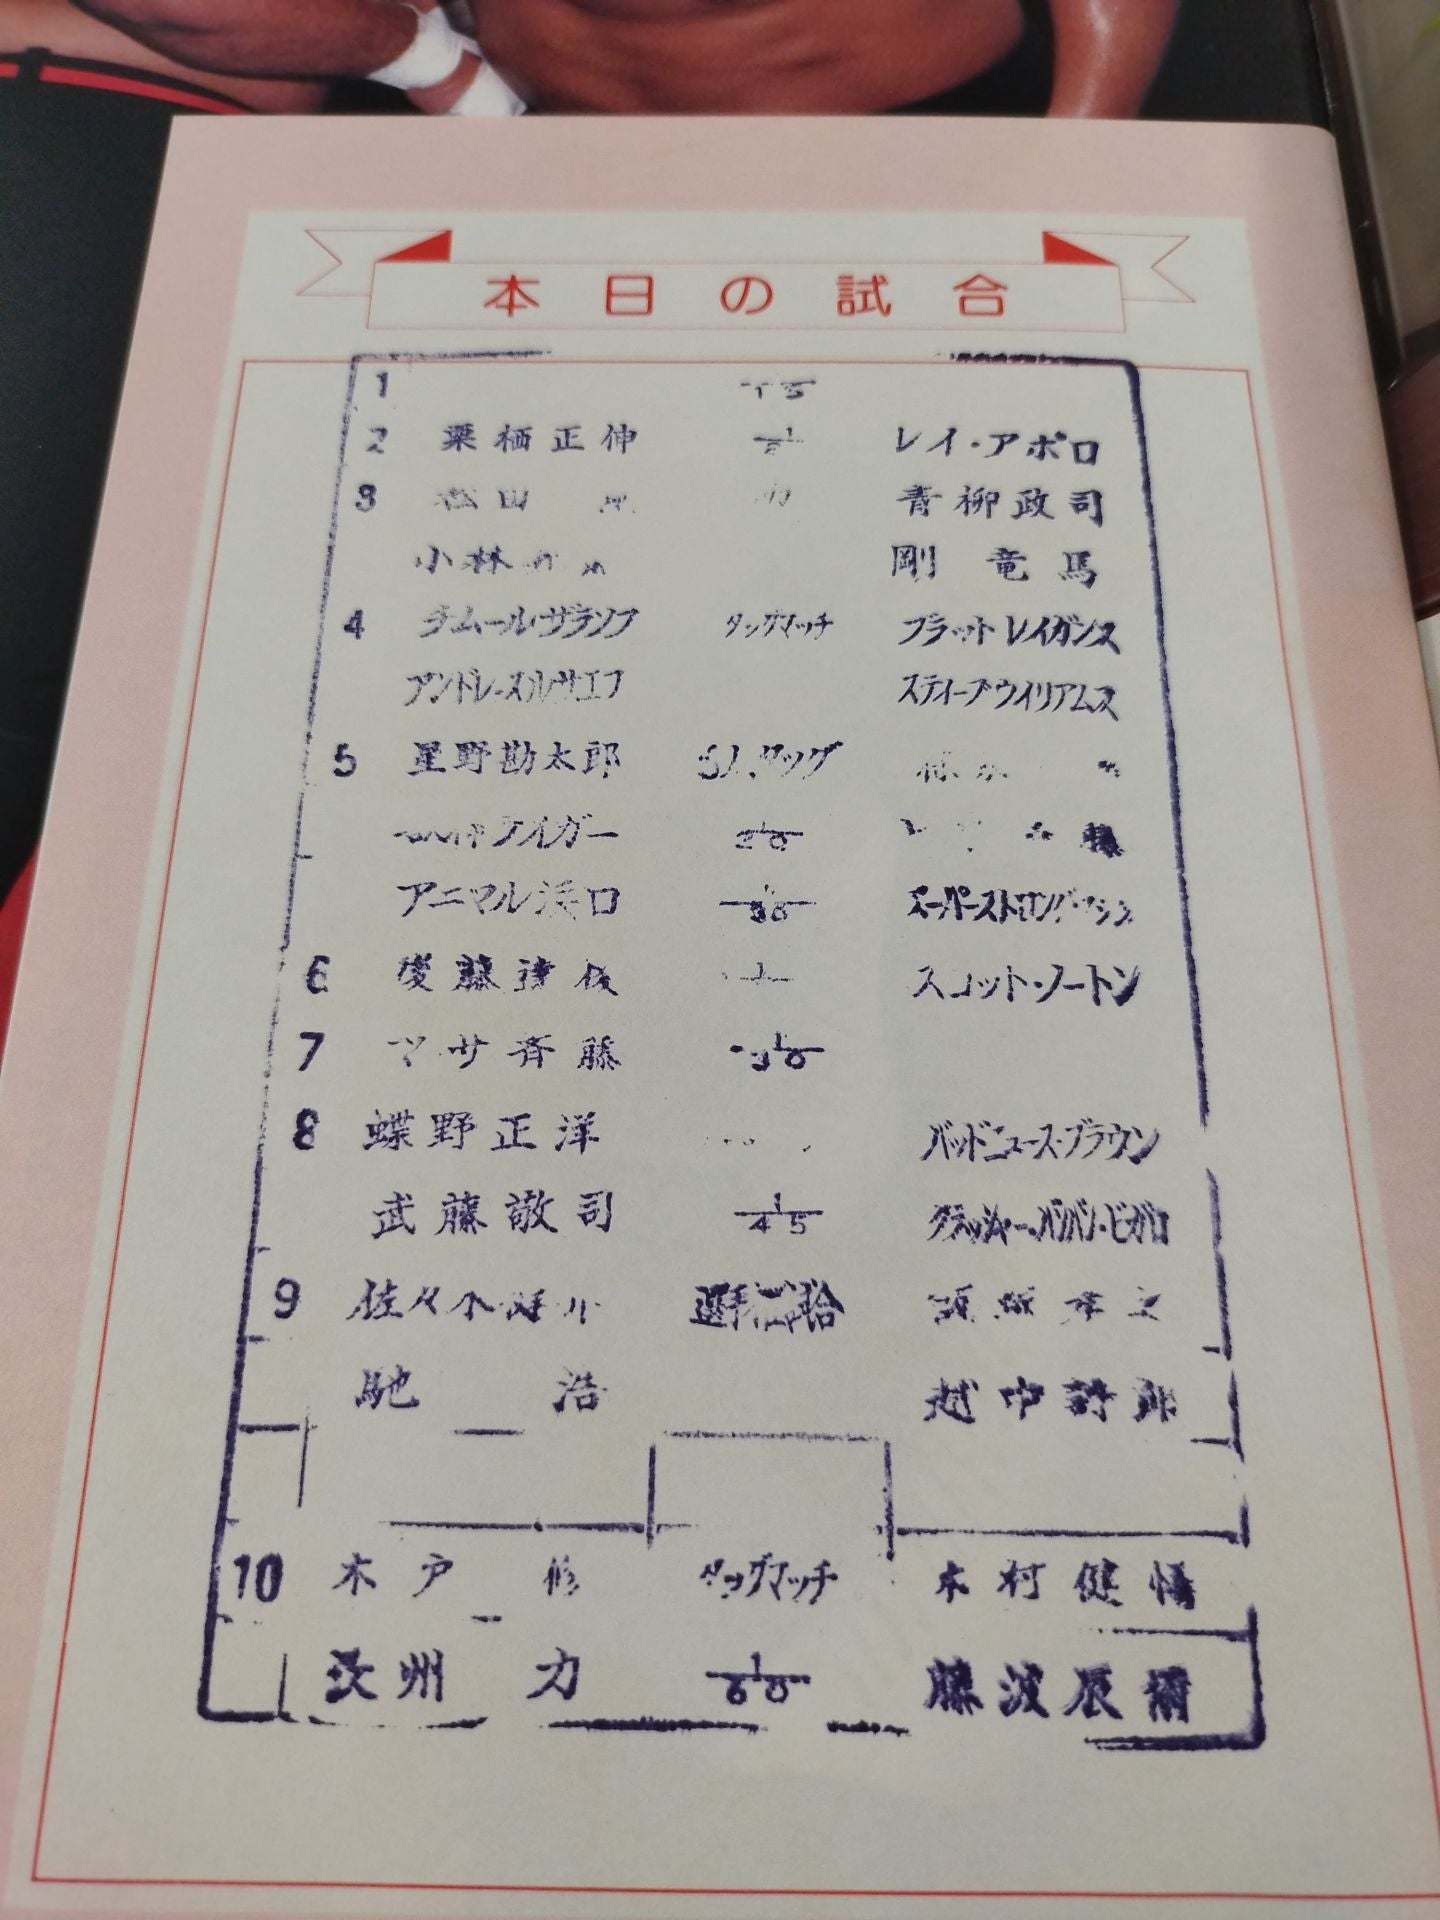 本日の試合
1 1/15
2 栗栖正伸 レイ・アポロ
3 松田 青柳政司
小林 剛竜馬
4 チムール・ザラソフ タッグマッチ ブラット レイガンス
アンドレ・スルサエフ スティーブ・ウイリアムス
5 星野勘太郎 6人タッグ
ライガー
アニマル浜口 1/30 スーパーストロング・マシン
6 後藤達俊 スコット・ノートン
7 マサ斉藤 1/30
8 蝶野正洋 バッドニュース・ブラウン
武藤敬司 1/45 クラッシャー・バンバン・ビガロ
9 佐々木健介 選手権試合 飯塚孝之
馳浩 越中詩郎
10 木戸修 タッグマッチ 木村健悟
長州力 1/60 藤波辰爾